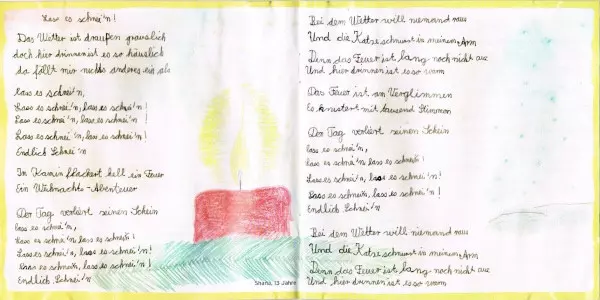 Lass es schnei'n!
Das Wetter ist draußen grauslich
doch hier drinnen ist es so häuslich
da fällt mir nichts anderes ein als
lass es schnei'n,
Lass es schnei'n, lass es schnei'n!
Lass es schnei'n, lass es schnei'n!
Lass es schnei'n, lass es schnei'n!
Endlich Schnei'n
In Kamin flackert hell ein Feuer
Ein Weihnachts-Abenteuer
Der Tag verliert seinen Schein
lass es schnei'n,
Lass es schnei'n, lass es schnei'n!
Lass es schnei'n, lass es schnei'n!
Lass es schnei'n, lass es schnei'n!
Endlich Schnei'n
Shania, 13 Jahre
Bei dem Wetter will niemand raus
Und die Katze schnurrt in meinem Arm
Denn das Feuer ist lang noch nicht aus
Und hier drinnen ist es so warm
Das Feuer ist am Verglimmen
Es knistert mit tausend Stimmen
Der Tag verliert seinen Schein
lass es schnei'n,
lass es schnei'n lass es schnei'n!
Lass es schnei'n, lass es schnei'n!
Lass es schnei'n, lass es schnei'n!
Endlich Schnei'n
Bei dem Wetter will niemand raus
Und die Katze schnurrt in meinem Arm
Denn das Feuer ist lang noch nicht aus
Und hier drinnen ist es so warm